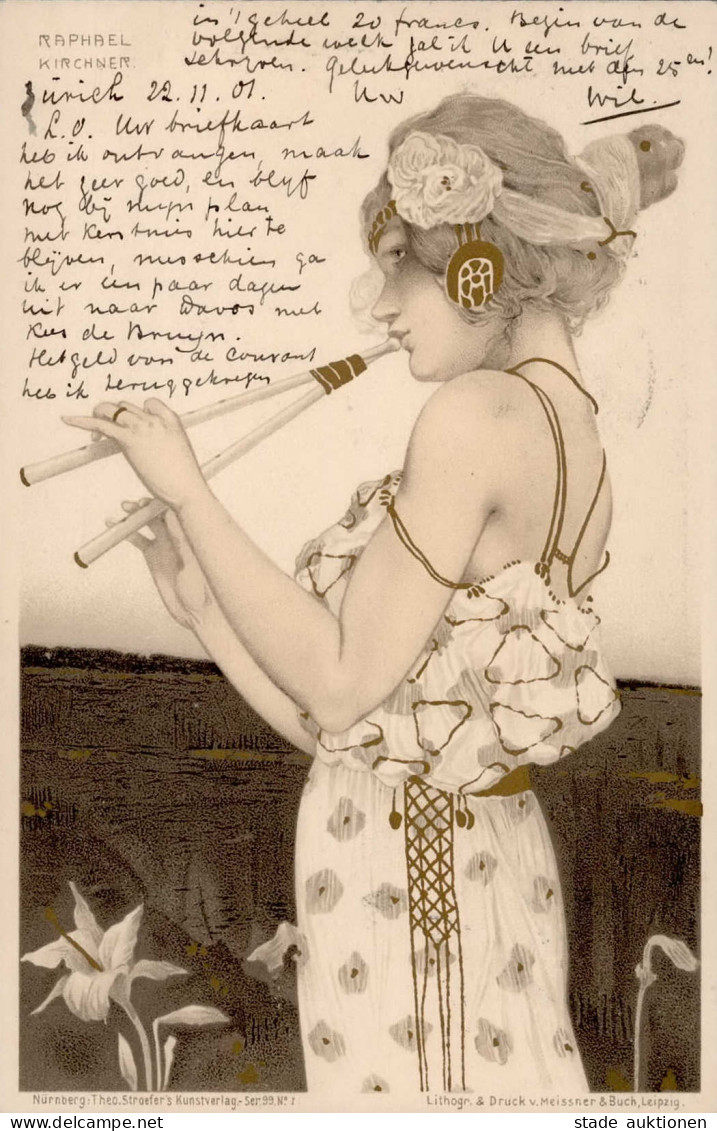 RAPHAEL
KIRCHNER.
Zürich 22.11.01.
L.O. Uw briefkaart
heb ik ontvangen, maak
het zeer goed, en blyf
nog bij mijn plan
met Kerstmis hier te
blijven, misschien ga
ik er een paar dagen
uit naar Davos met
Kees de Bruyn.
Het geld van de Courant
heb ik teruggekregen
in 't geheel 20 francs. Begin van de
volgende week zal ik U een brief
schrijven. Gelukgewenscht met den 25en!
Uw Wil.
Nürnberg: Theo. Stroefer's Kunstverlag.- Ser. 99. No 1
Lithogr. & Druck v. Meissner & Buch, Leipzig.
stade auktionen